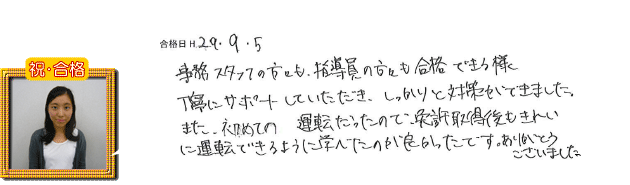 合格日 H.29.9.5
祝・合格
事務スタッフの方々も、指導員の方々も合格できる様
丁寧にサポートしていただき、しっかりと対策ができました。
また、初めての 運転だったので、免許取得後もきれい
に運転できるように学べたのが良かったです。ありがとう
ございました